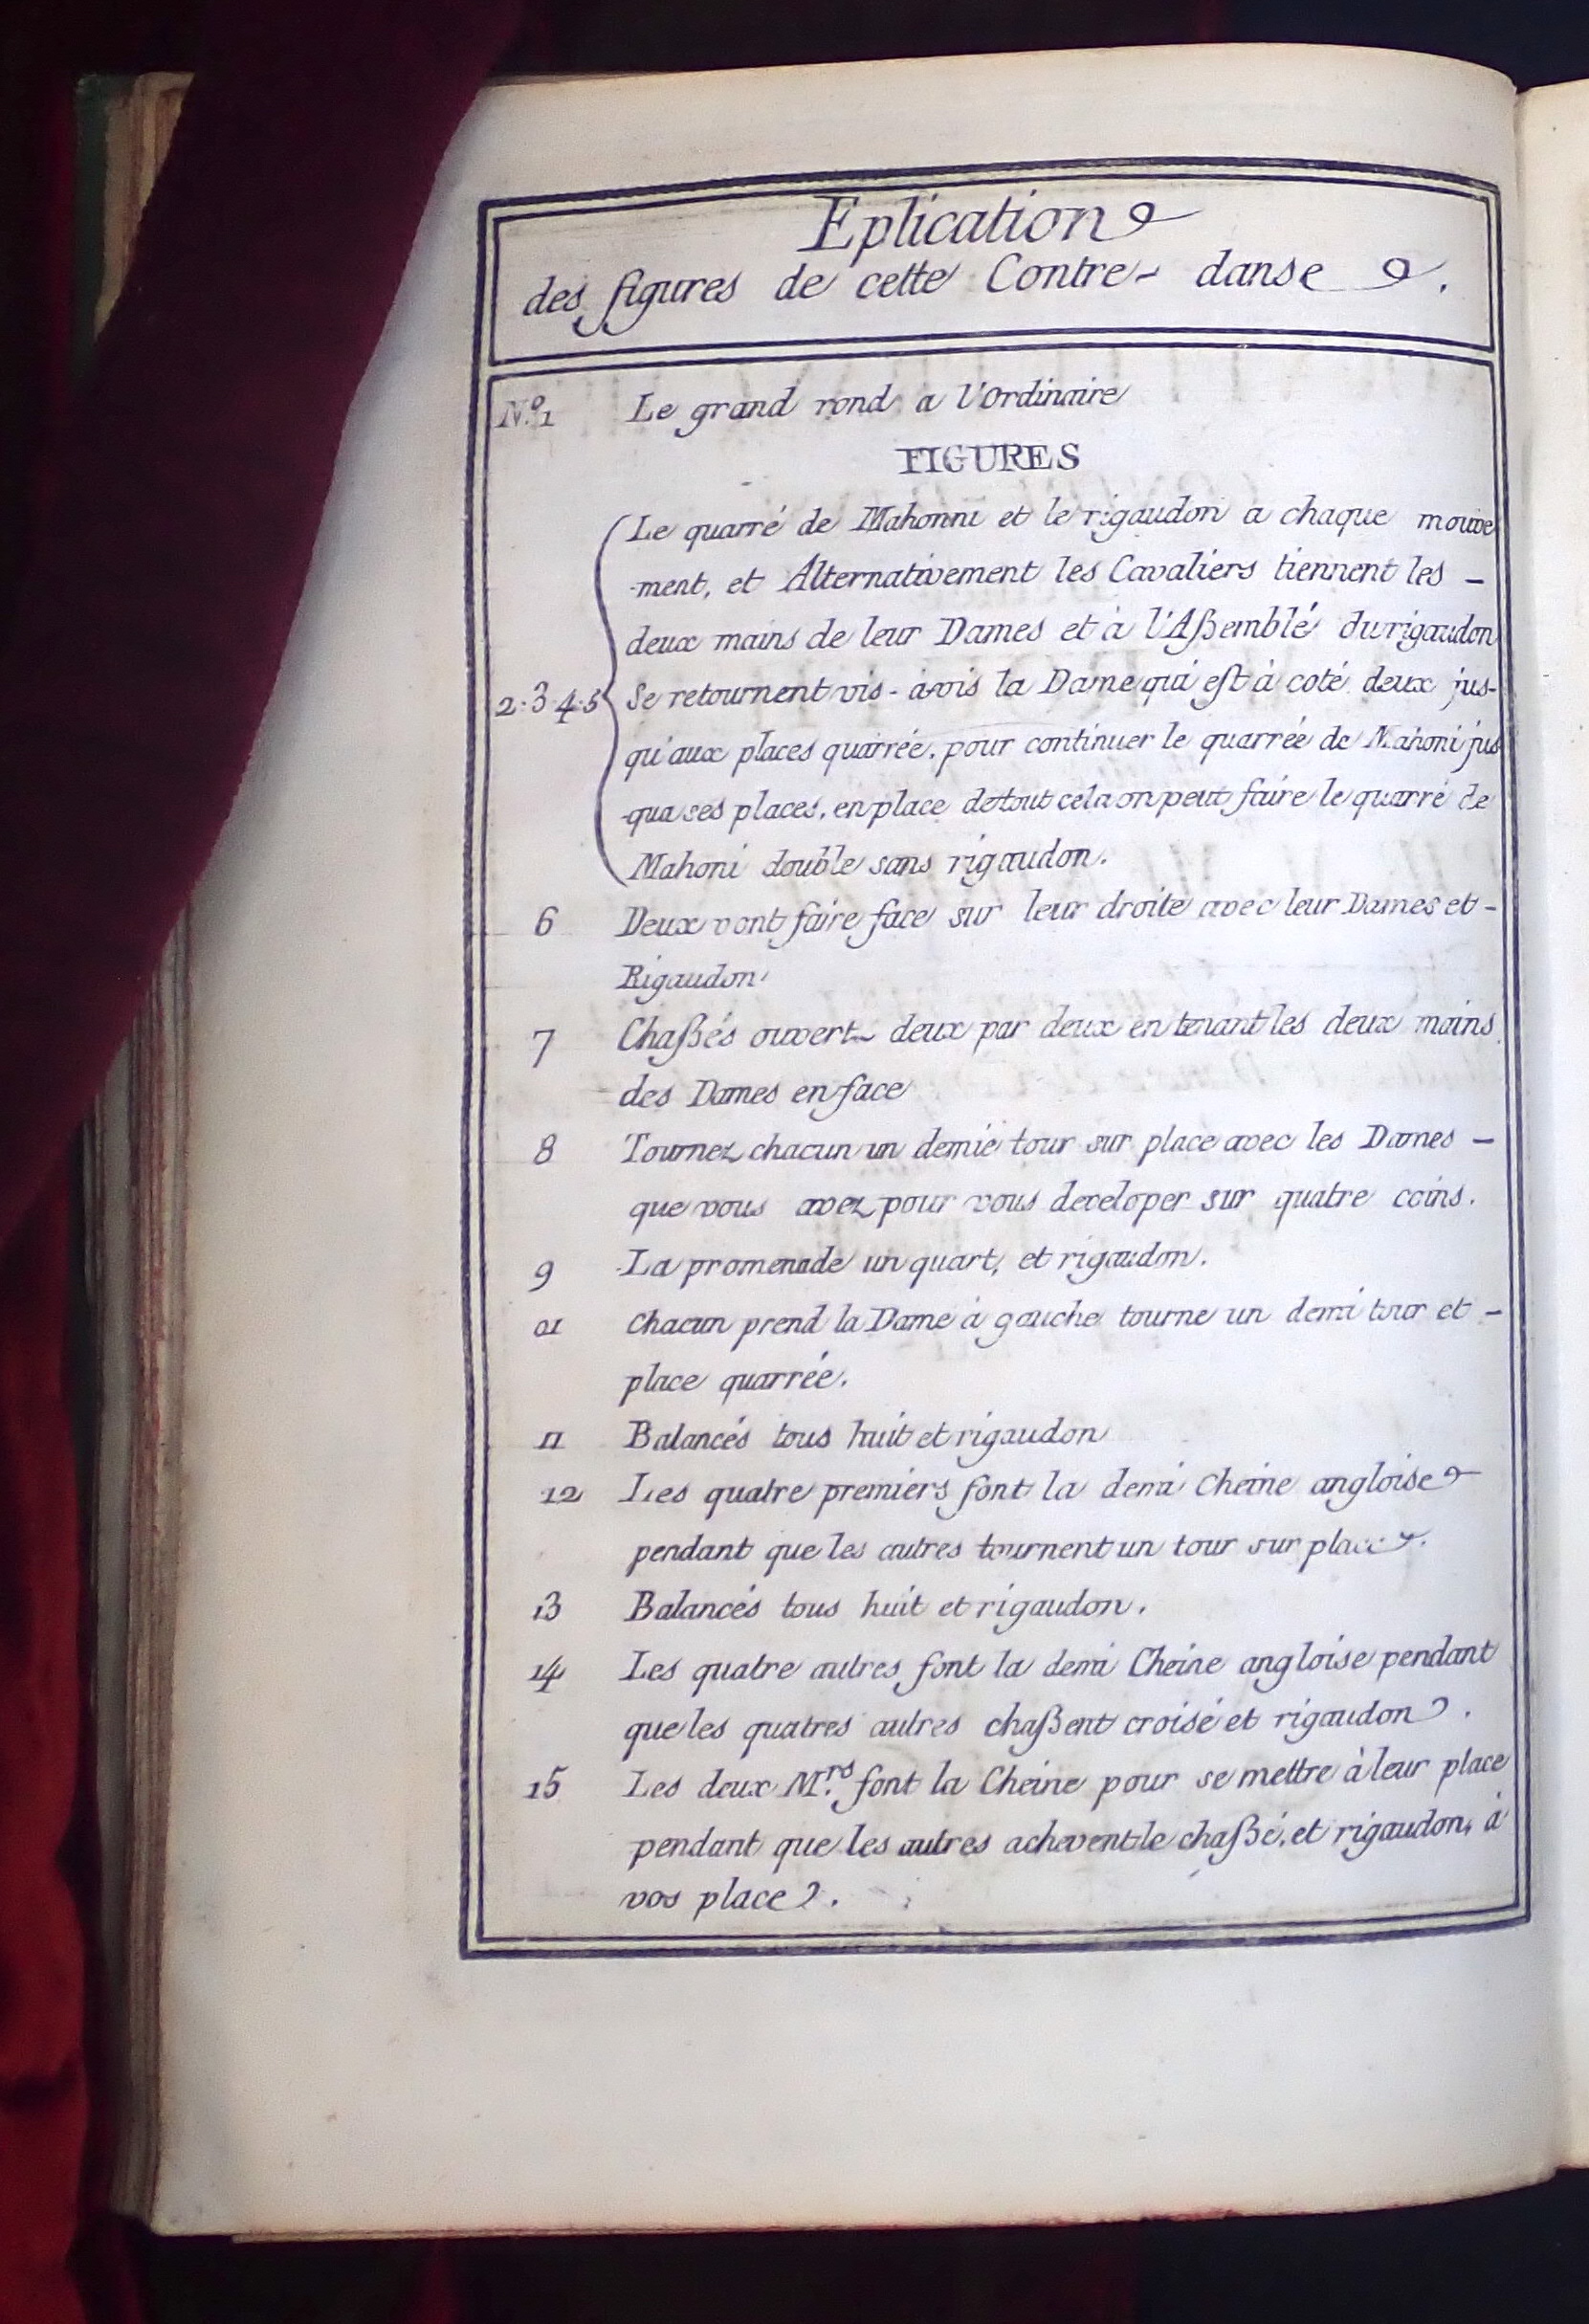 Eplication
des figures de cette Contre- danse.
N.º1 Le grand rond a l'Ordinaire
FIGURES
Le quarré de Mahonni et le rigaudon a chaque mouve
-ment, et Alternativement les Cavaliers tiennent les -
deux mains de leur Dames et à l'Aßemblé du rigaudon
2.3.4.5 Se retournent vis-avis la Dame qui est à coté deux jus-
qu'aux places quarrée, pour continuer le quarrée de Mahoni jus
-qua ses places, en place de tout cela on peut faire le quarré de
Mahoni double sans rigaudon.
6 Deux vont faire face sur leur droite avec leur Dames et -
Rigaudon
7 Chaßés ouvert deux par deux en tenant les deux mains
des Dames en face
8 Tournez chacun un demie tour sur place avec les Dames -
que vous avez pour vous developer sur quatre coins.
9 La promenade un quart, et rigaudon.
01 Chacun prend la Dame à gauche tourne un demi tour et -
place quarrée.
11 Balancés tous huit et rigaudon
12 Les quatre premiers font la demi Cheine angloise
pendant que les autres tournent un tour sur place.
13 Balancés tous huit et rigaudon.
14 Les quatre autres font la demi Cheine angloise pendant
que les quatres autres chaßent croisé et rigaudon.
15 Les deux M.rs font la Cheine pour se mettre à leur place
pendant que les autres achevent le chaßé, et rigaudon, à
vos place.